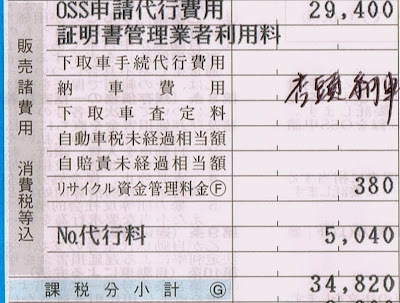 OSS申請代行費用 29,400
証明書管理業者利用料
下取車手続代行費用
納車費用 店頭納車
下取車査定料
自動車税未経過相当額
自賠責未経過相当額
リサイクル資金管理料金Ⓕ 380
No.代行料 5,040
課税分小計 Ⓖ 34,820
販売諸費用 消費税等込